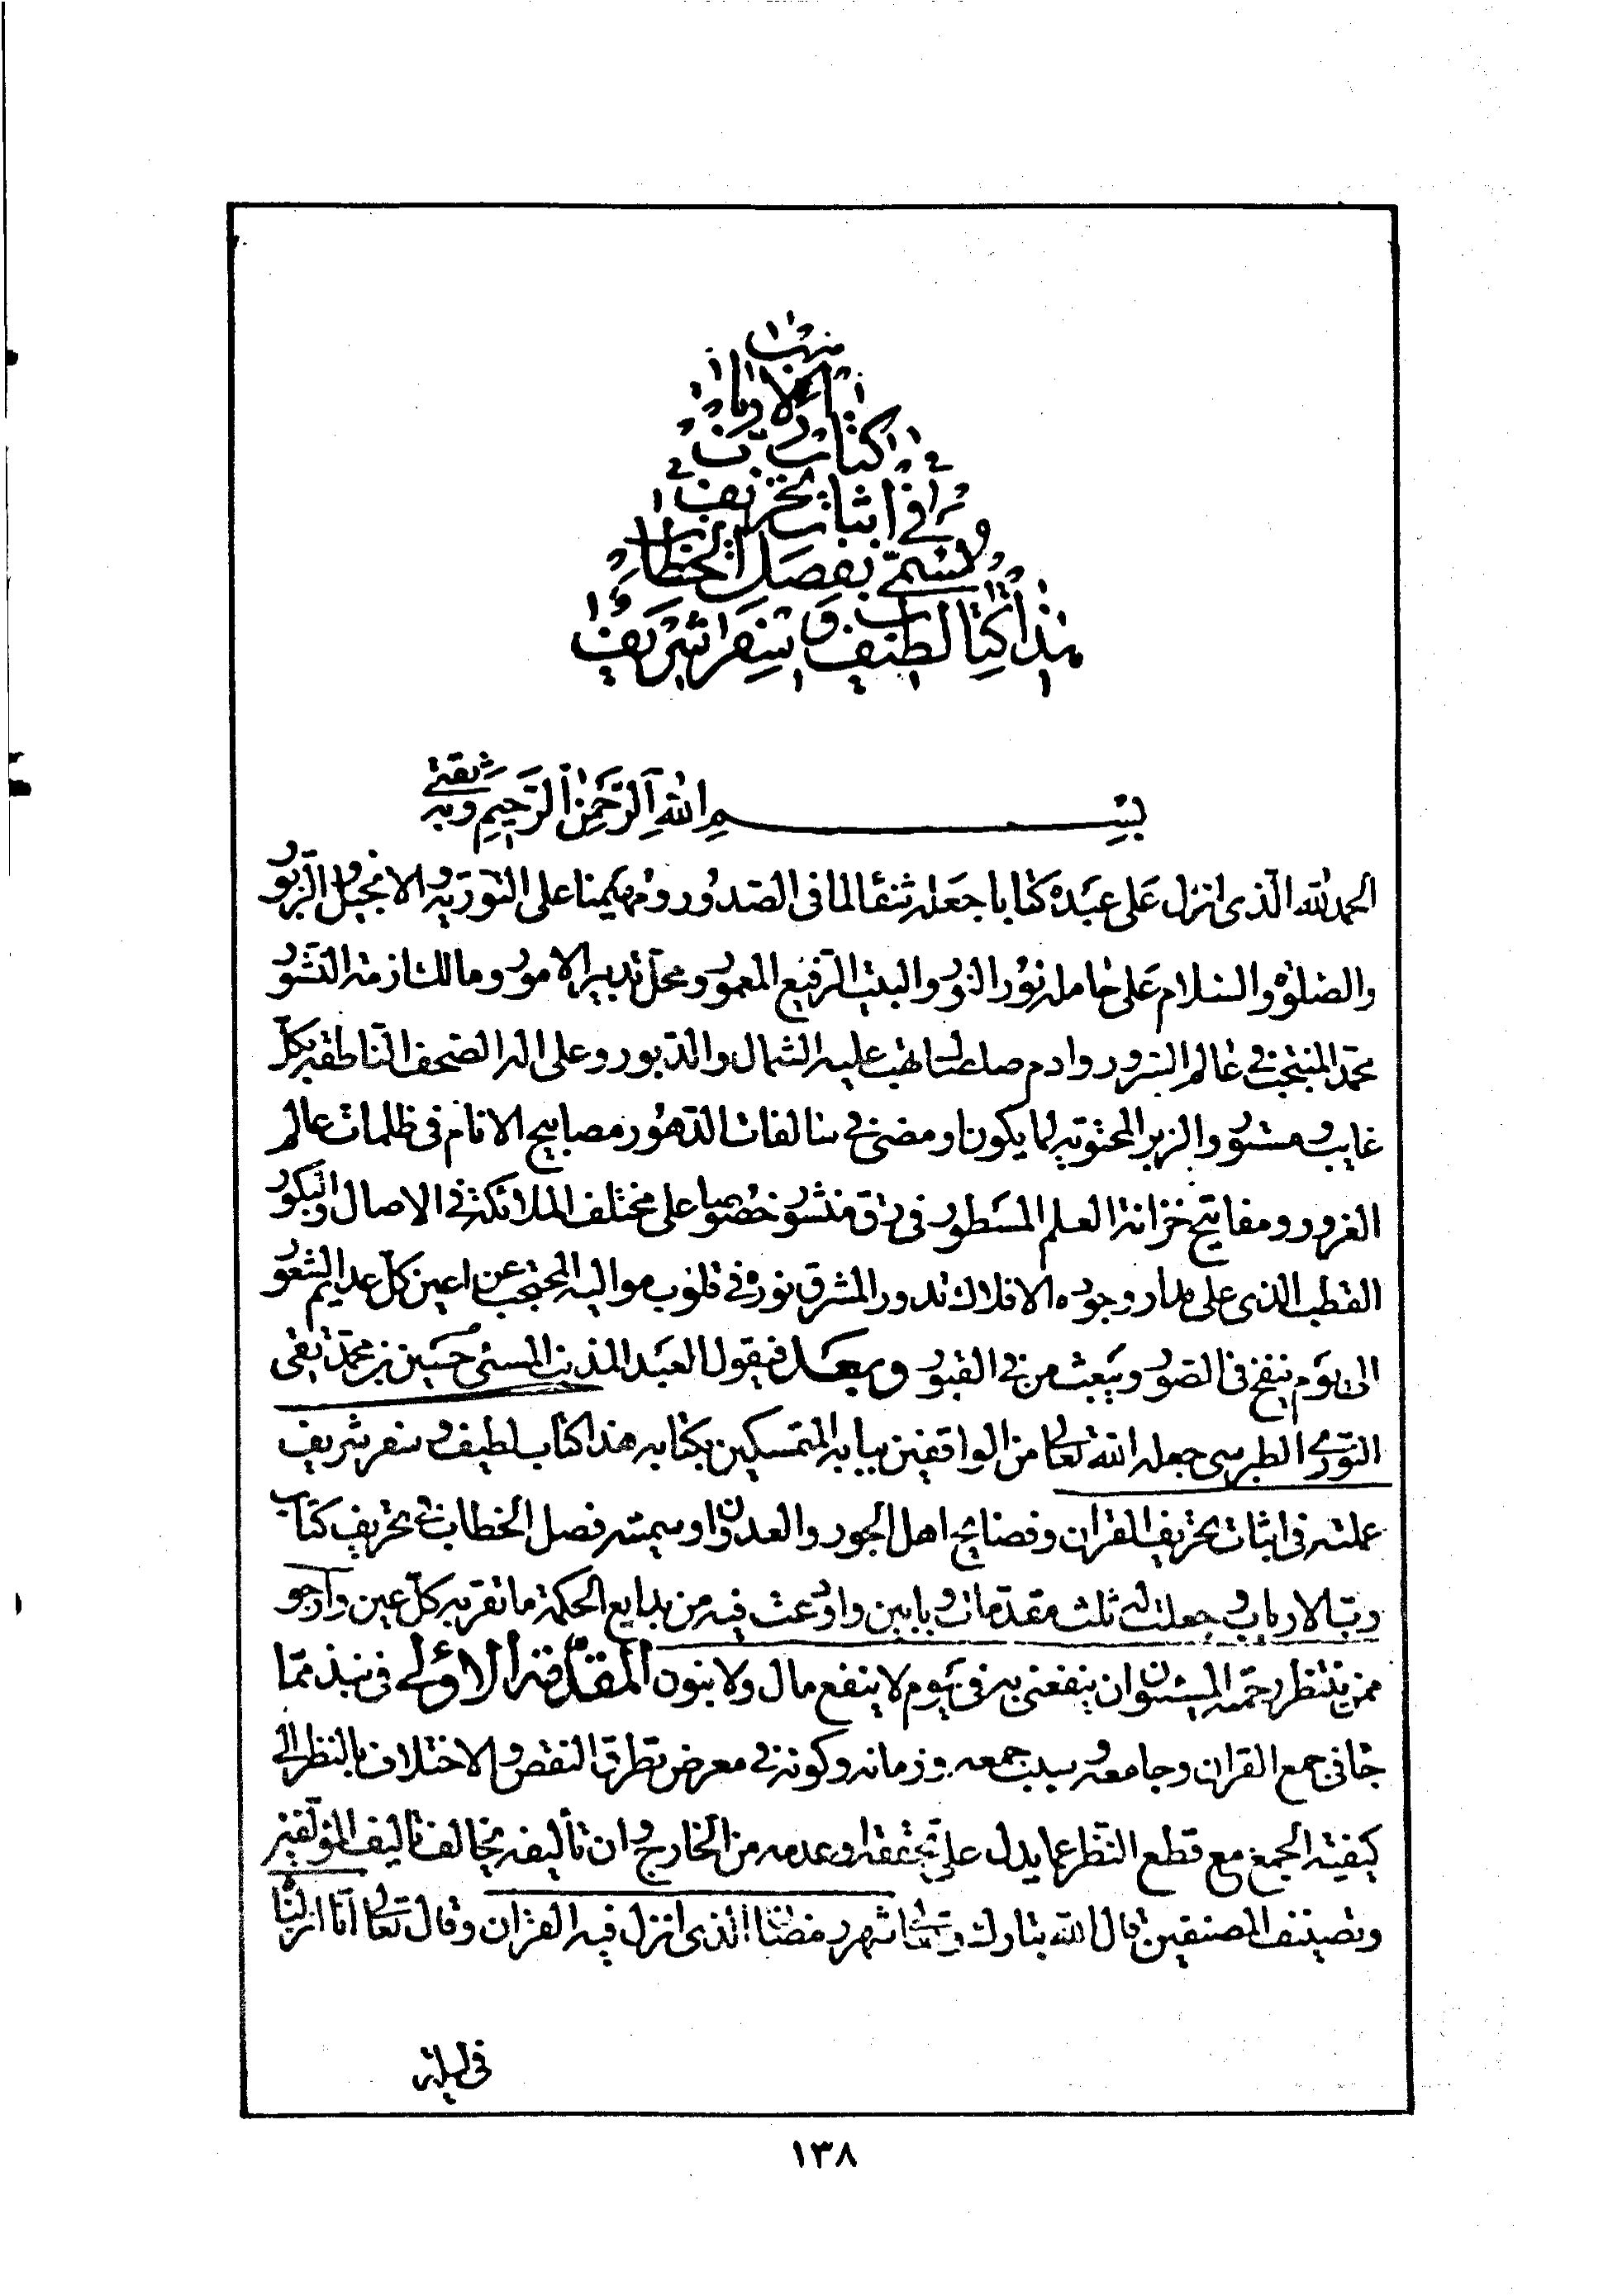 رب الارباب
كتاب
في اثبات تحريف
المسمى بفصل الخطاب
هذا كتاب لطيف و سفر شريف
بسم الله الرحمن الرحيم وبه ثقتي
الحمد لله الذى انزل على عبده كتابا جعله شفآء لما فى الصدور ومهيمنا على التورية والانجيل والزبور
والصلوة والسلام على حامله نور النور والبيت الرفيع المعمور ومحل تدبير الامور ومالك ازمة النشور
محمد المنتجب في عالم السرور وادم صلى الله عليه الشمال والدبور وعلى اله الصحف الناطقة بكل
غايب ومستور والزبر المحتوية لما يكون او مضى في سالفات الدهور مصابيح الانام فى ظلمات عالم
الغرور ومفاتيح خزانة العلم المسطور فى رق منشور خصوصا على مختلف الملائكة في الاصال والبكور
القطب الذى على مدار وجوده الافلاك تدور المشرق نوره في قلوب مواليه المحتجب عن اعين كل عديم الشعور
الى يوم ينفخ فى الصور ويبعث من في القبور وبعد فيقول العبد المذنب المسئ حسين بن محمد تقى
النورى الطبرسى جعله الله تعالى من الواقفين ببابه المتمسكين بكتابه هذا كتاب لطيف وسفر شريف
عملته فى اثبات تحريف القران وفضايح اهل الجور والعدوان وسميته فصل الخطاب في تحريف كتاب
رب الارباب وجعلت له ثلث مقدمات وبابين واودعت فيه من بدايع الحكمة ما تقر به كل عين وارجو
ممن ينتظر رحمته المسيئون ان ينفعنى به فى يوم لا ينفع مال ولا بنون المقدمة الاولى فى نبذ مما
جاء فى جمع القران وجامعه وسبب جمعه وزمانه وكونه في معرض تطرق النقص والاختلاف بالنظر الى
كيفية الجمع مع قطع النظر عما يدل على تحققه او عدمه من الخارج وان تأليفه يخالف تاليف المؤلفين
وتصنيف المصنفين قال الله تبارك وتعالى شهر رمضان الذى انزل فيه القران وقال تعالى انا انزلناه
فى ليلة
١٣٨